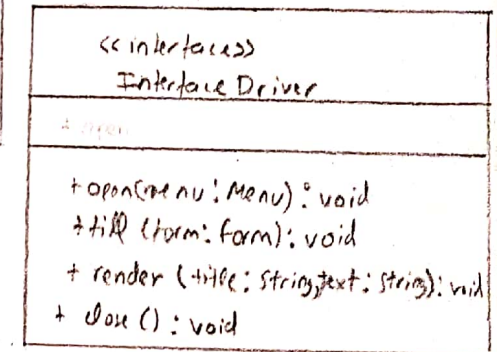 <<interfaces>>
Interface Driver
+ open
+ open(menu: Menu): void
+ fill (form: form): void
+ render (title: string, text: string): void
+ close (): void